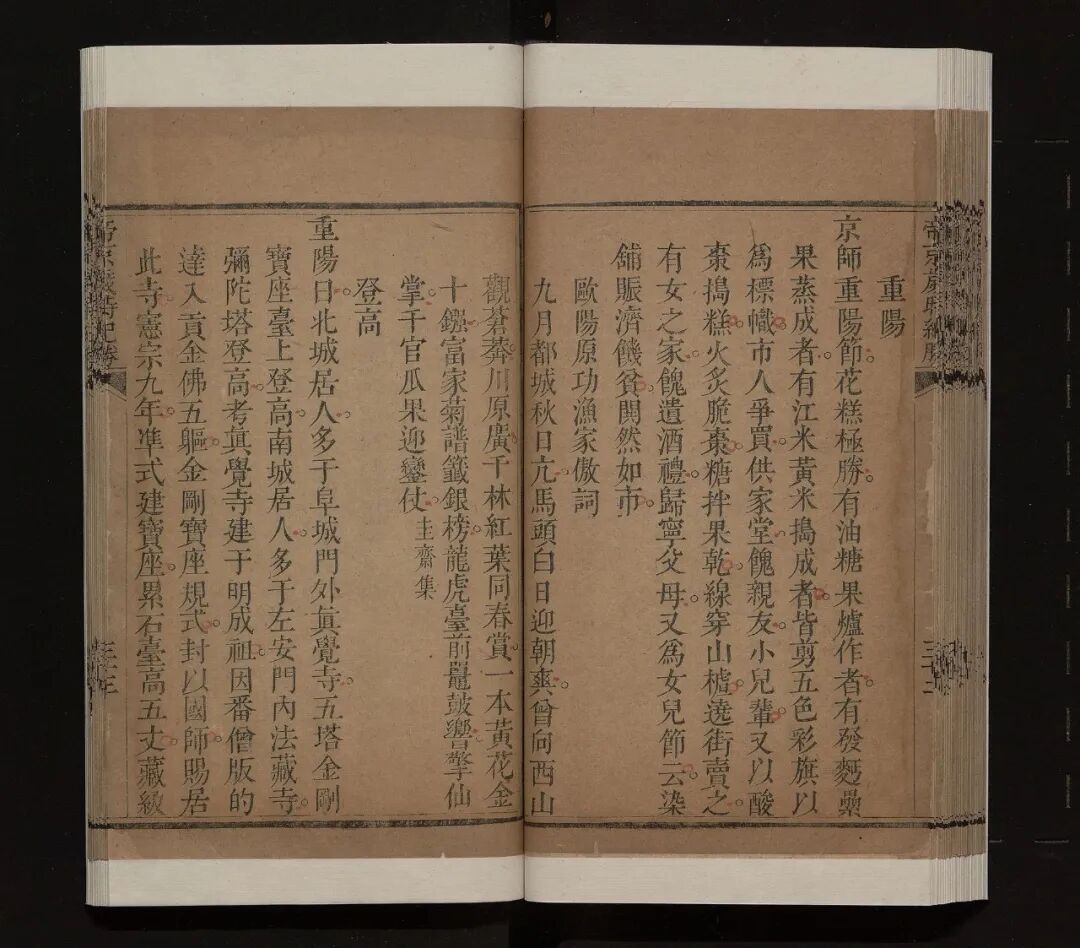 帝京歲時紀勝
重陽
京師重陽節花糕極勝有油糖果爐作者有發麪壘
果蒸成者有江米黃米搗成者皆剪五色彩旗以
爲標幟市人爭買供家堂餽親友小兒輩又以酸
棗搗糕火炙脆棗糖拌果乾線穿山樝遶街賣之
有女之家餽遺酒禮歸寧父母又爲女兒節云染
鋪賑濟饑貧閧然如市
歐陽原功漁家傲詞
九月都城秋日亢馬頭白日迎朝爽曾向西山
觀蒼莽川原廣千林紅葉同春賞一本黃花金
十鏹富家菊譜籤銀榜龍虎臺前鼉鼓響擎仙
掌千官瓜果迎鑾仗圭齋集
登高
重陽日北城居人多于阜城門外眞覺寺五塔金剛
寶座臺上登高南城居人多于左安門內法藏寺
彌陀塔登高考眞覺寺建于明成祖因番僧版的
達入貢金佛五軀金剛寶座規式封以國師賜居
此寺憲宗九年準式建寶座累石臺高五丈藏級
帝京歲時紀勝